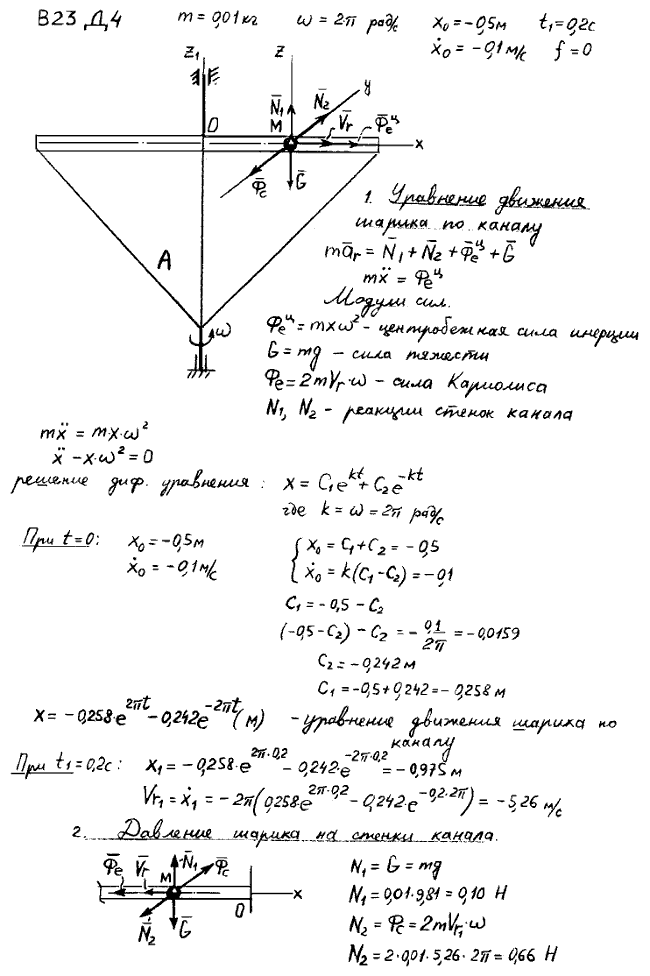 В23 Д.4 m = 0,01 кг ω = 2π рад/с x₀ = -0,5м t₁ = 0,2с
ẋ₀ = -0,1 м/с f = 0
z₁ z y
N̄₁ N̄₂
O M V̄r Φ̄eᶥ x
Φ̄c Ḡ
A
ω
1. Уравнение движения
шарика по каналу
mār = N̄₁ + N̄₂ + Φ̄eᶥ + Ḡ
mẍ = Φeᶥ
Модули сил.
Φeᶥ = mxω² - центробежная сила инерции
G = mg - сила тяжести
Φe = 2mVr·ω - сила Кариолиса
N₁, N₂ - реакции стенок канала
mẍ = m·x·ω²
ẍ - x·ω² = 0
решение диф. уравнения: x = C₁e^kt + C₂e^-kt
где k = ω = 2π рад/с
При t = 0: x₀ = -0,5м { x₀ = C₁ + C₂ = -0,5
ẋ₀ = -0,1 м/с ẋ₀ = k(C₁ - C₂) = -0,1
C₁ = -0,5 - C₂
(-0,5 - C₂) - C₂ = - 0,1/2π = -0,0159
C₂ = -0,242 м
C₁ = -0,5 + 0,242 = -0,258 м
x = -0,258·e^2πt - 0,242e^-2πt (м) - уравнение движения шарика по
каналу
При t₁ = 0,2с: x₁ = -0,258·e^2π·0,2 - 0,242·e^-2π·0,2 = -0,975 м
Vr₁ = ẋ₁ = -2π(0,258e^2π·0,2 - 0,242·e^-0,2·2π) = -5,26 м/с
2. Давление шарика на стенки канала.
Φ̄e V̄r M N̄₁ Φ̄c
x
O
N̄₂ Ḡ
N₁ = G = mg
N₁ = 0,01·9,81 = 0,10 Н
N₂ = Φc = 2mVr₁·ω
N₂ = 2·0,01·5,26·2π = 0,66 Н